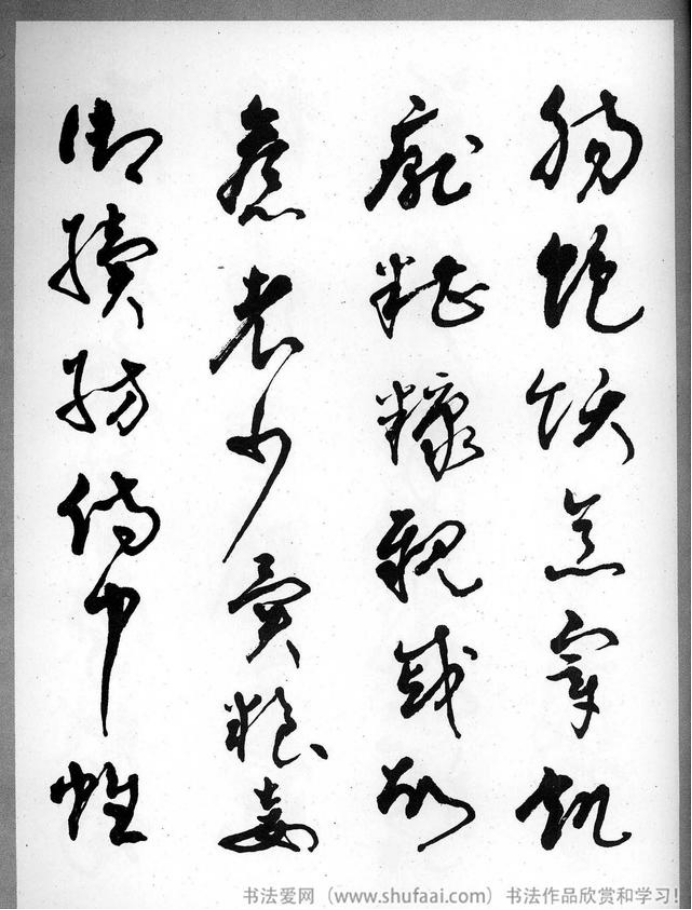 腸飽飫烹宰飢
厭糟糠親戚故
舊老少異糧妾
御績紡侍巾帷
书法爱网（www.shufaai.com）书法作品欣赏和学习！